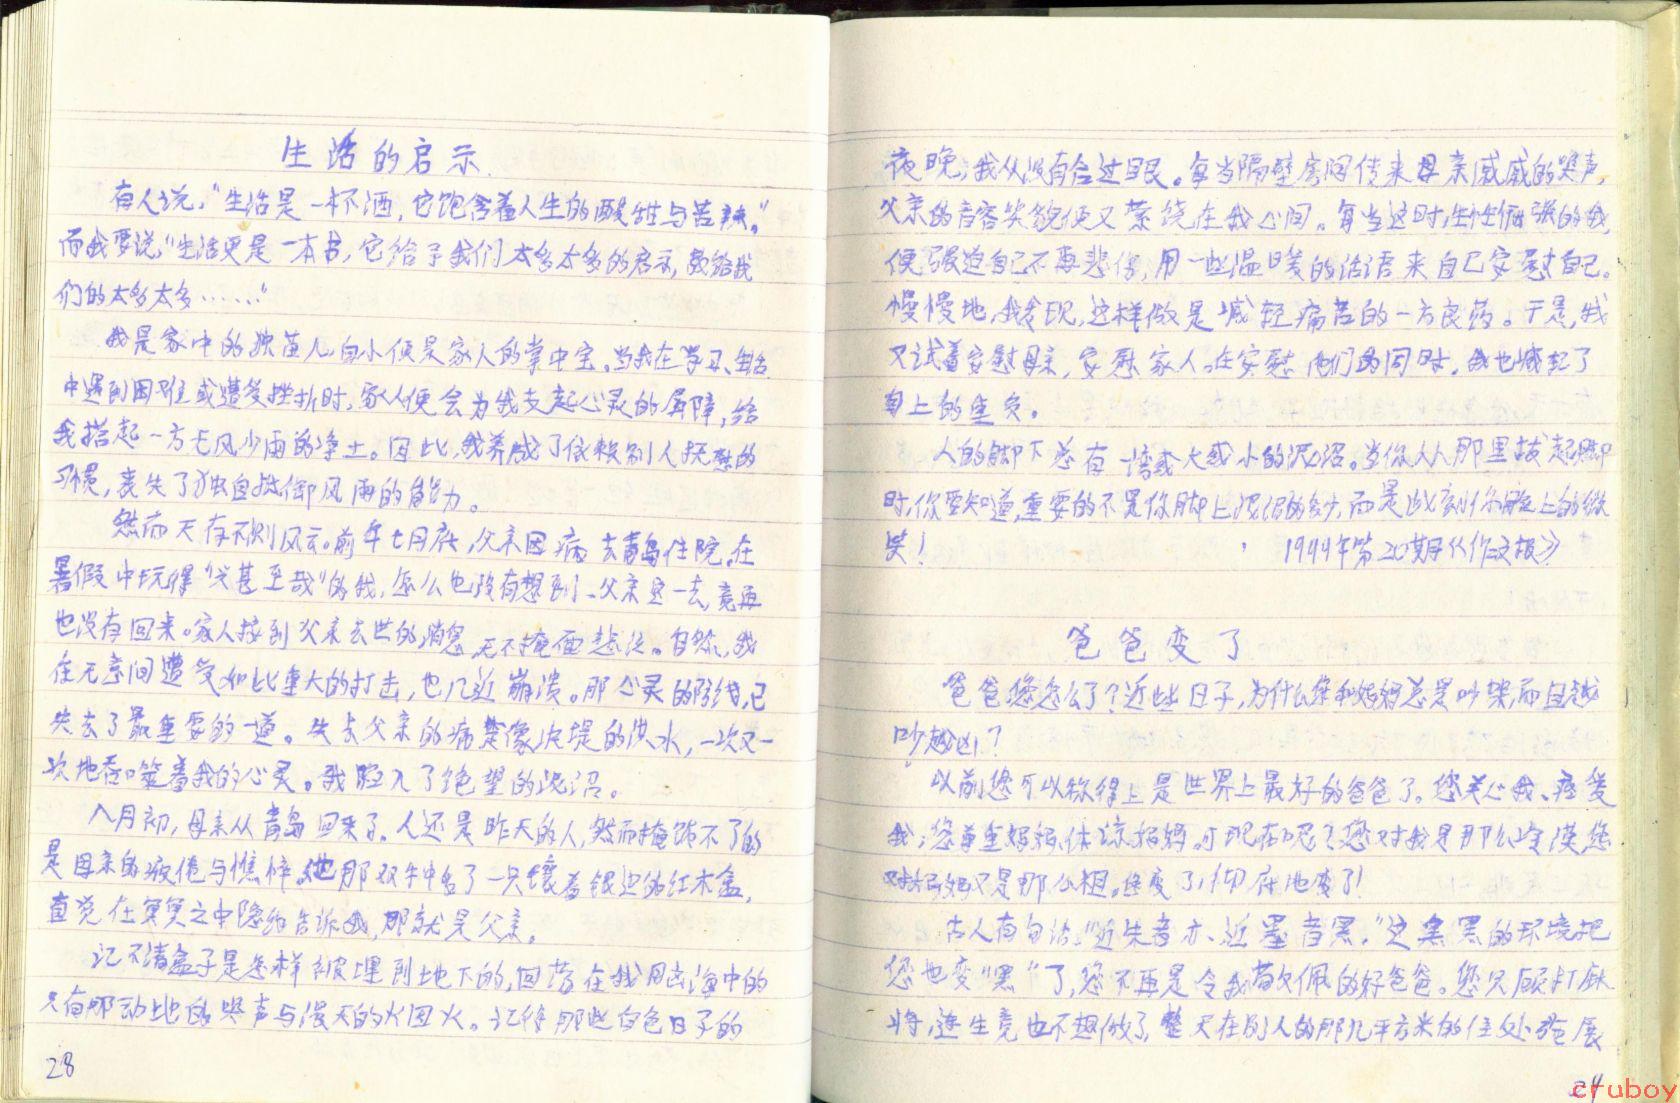 生活的启示
有人说，"生活是一杯酒，它饱含着人生的酸甜与苦辣。"
而我要说，"生活更是一本书，它给予我们太多太多的启示，教给我
们的太多太多……"
我是家中的独苗儿，自小便是家人的掌中宝。当我在学习、生活
中遇到困难或遭受挫折时，家人便会为我支起心灵的屏障，给
我搭起一方无风少雨的净土。因此，我养成了依赖别人抚慰的
习惯，丧失了独自抵御风雨的能力。
然而天有不测风云。前年七月底，父亲因病去青岛住院。在
暑假中玩得"兴甚至哉"的我，怎么也没有想到、父亲这一去，竟再
也没有回来。家人接到父亲去世的消息，无不掩面悲泣。自然，我
在无意间遭受如此重大的打击，也几近崩溃。那心灵的防线，已
失去了最重要的一道。失去父亲的痛楚像决堤的洪水，一次又一
次地吞噬着我的心灵。我陷入了绝望的泥沼。
八月初，母亲从青岛回来了。人还是昨天的人，然而掩饰不了的
是母亲的疲倦与憔悴。她那双手中多了一只镶着银边的红木盒，
直觉在冥冥之中隐约告诉我，那就是父亲。
记不清盒子是怎样被埋到地下的，回荡在我脑海中的
只有那动地的哭声与漫天的火团火。记得那些白色日子的
28
夜晚，我从没有合过眼。每当隔壁房间传来母亲戚戚的哭声，
父亲的音容笑貌便又萦绕在我心间。每当这时，生性倔强的我，
便强迫自己不再悲伤，用一些温暖的话语来自己安慰自己。
慢慢地，我发现，这样做是减轻痛苦的一方良药。于是，我
又试着安慰母亲，安慰家人。在安慰他们的同时，我也减轻了
身上的重负。
人的脚下总有一滩或大或小的泥沼。当你从那里拔起脚
时，你要知道，重要的不是你脚上泥沼的多少，而是此刻你脸上的微
笑！ 1999年第20期《作文报》
爸爸变了
爸爸您怎么了？近些日子，为什么您和妈妈总是吵架，而且越
吵越凶？
以前您可以称得上是世界上最好的爸爸了。您关心我、疼爱
我；您尊重妈妈，体谅妈妈。可现在呢？您对我是那么冷漠，您
对妈妈又是那么粗。您变了！彻底地变了！
古人有句话，"近朱者赤、近墨者黑，"这黑黑的环境把
您也变"黑"了，您不再是令我敬佩的好爸爸。您只顾打麻
将，连生意也不想做了，整天在别人的那几平方米的住处
24
cruboy